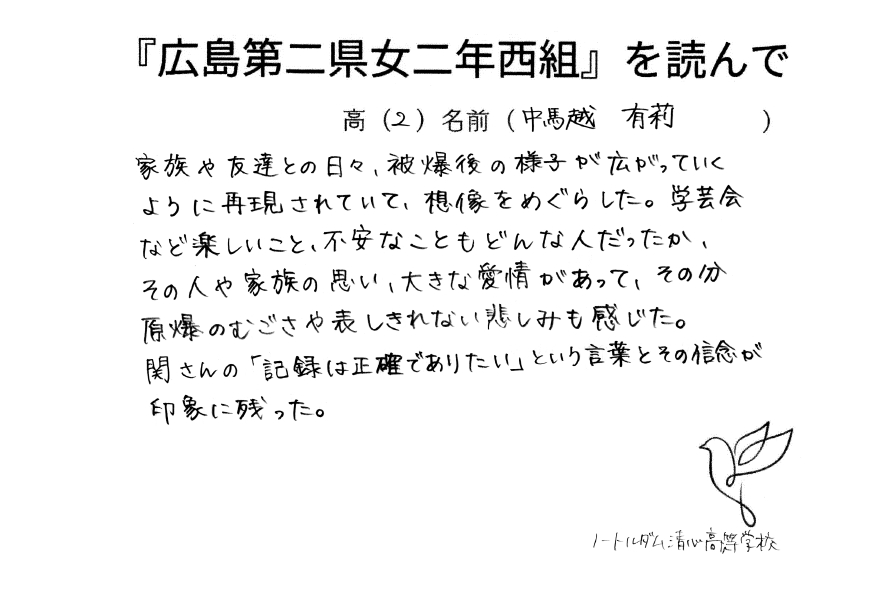 『広島第二県女二年西組』を読んで
高（2）名前（中馬越 有莉 ）
家族や友達との日々、被爆後の様子が広がっていく
ように再現されていて、想像をめぐらした。学芸会
など楽しいこと、不安なこともどんな人だったか、
その人や家族の思い、大きな愛情があって、その分
原爆のむごさや表しきれない悲しみも感じた。
関さんの「記録は正確でありたい」という言葉とその信念が
印象に残った。
ノートルダム清心高等学校